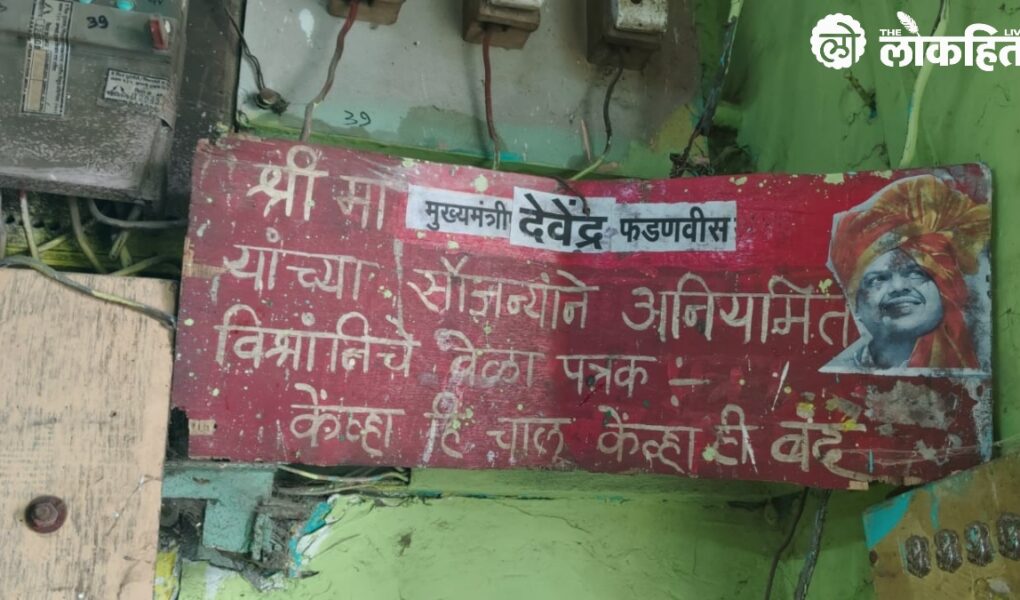 THE LIV
लो लोकहित
39
39
श्री मा मुख्यमंत्री देवेंद्र फडणवीस
यांच्या सौजन्याने अनियमित
विश्रांतिचे वेळा पत्रक :-
केंव्हा हि चालू केंव्हा ही बंद